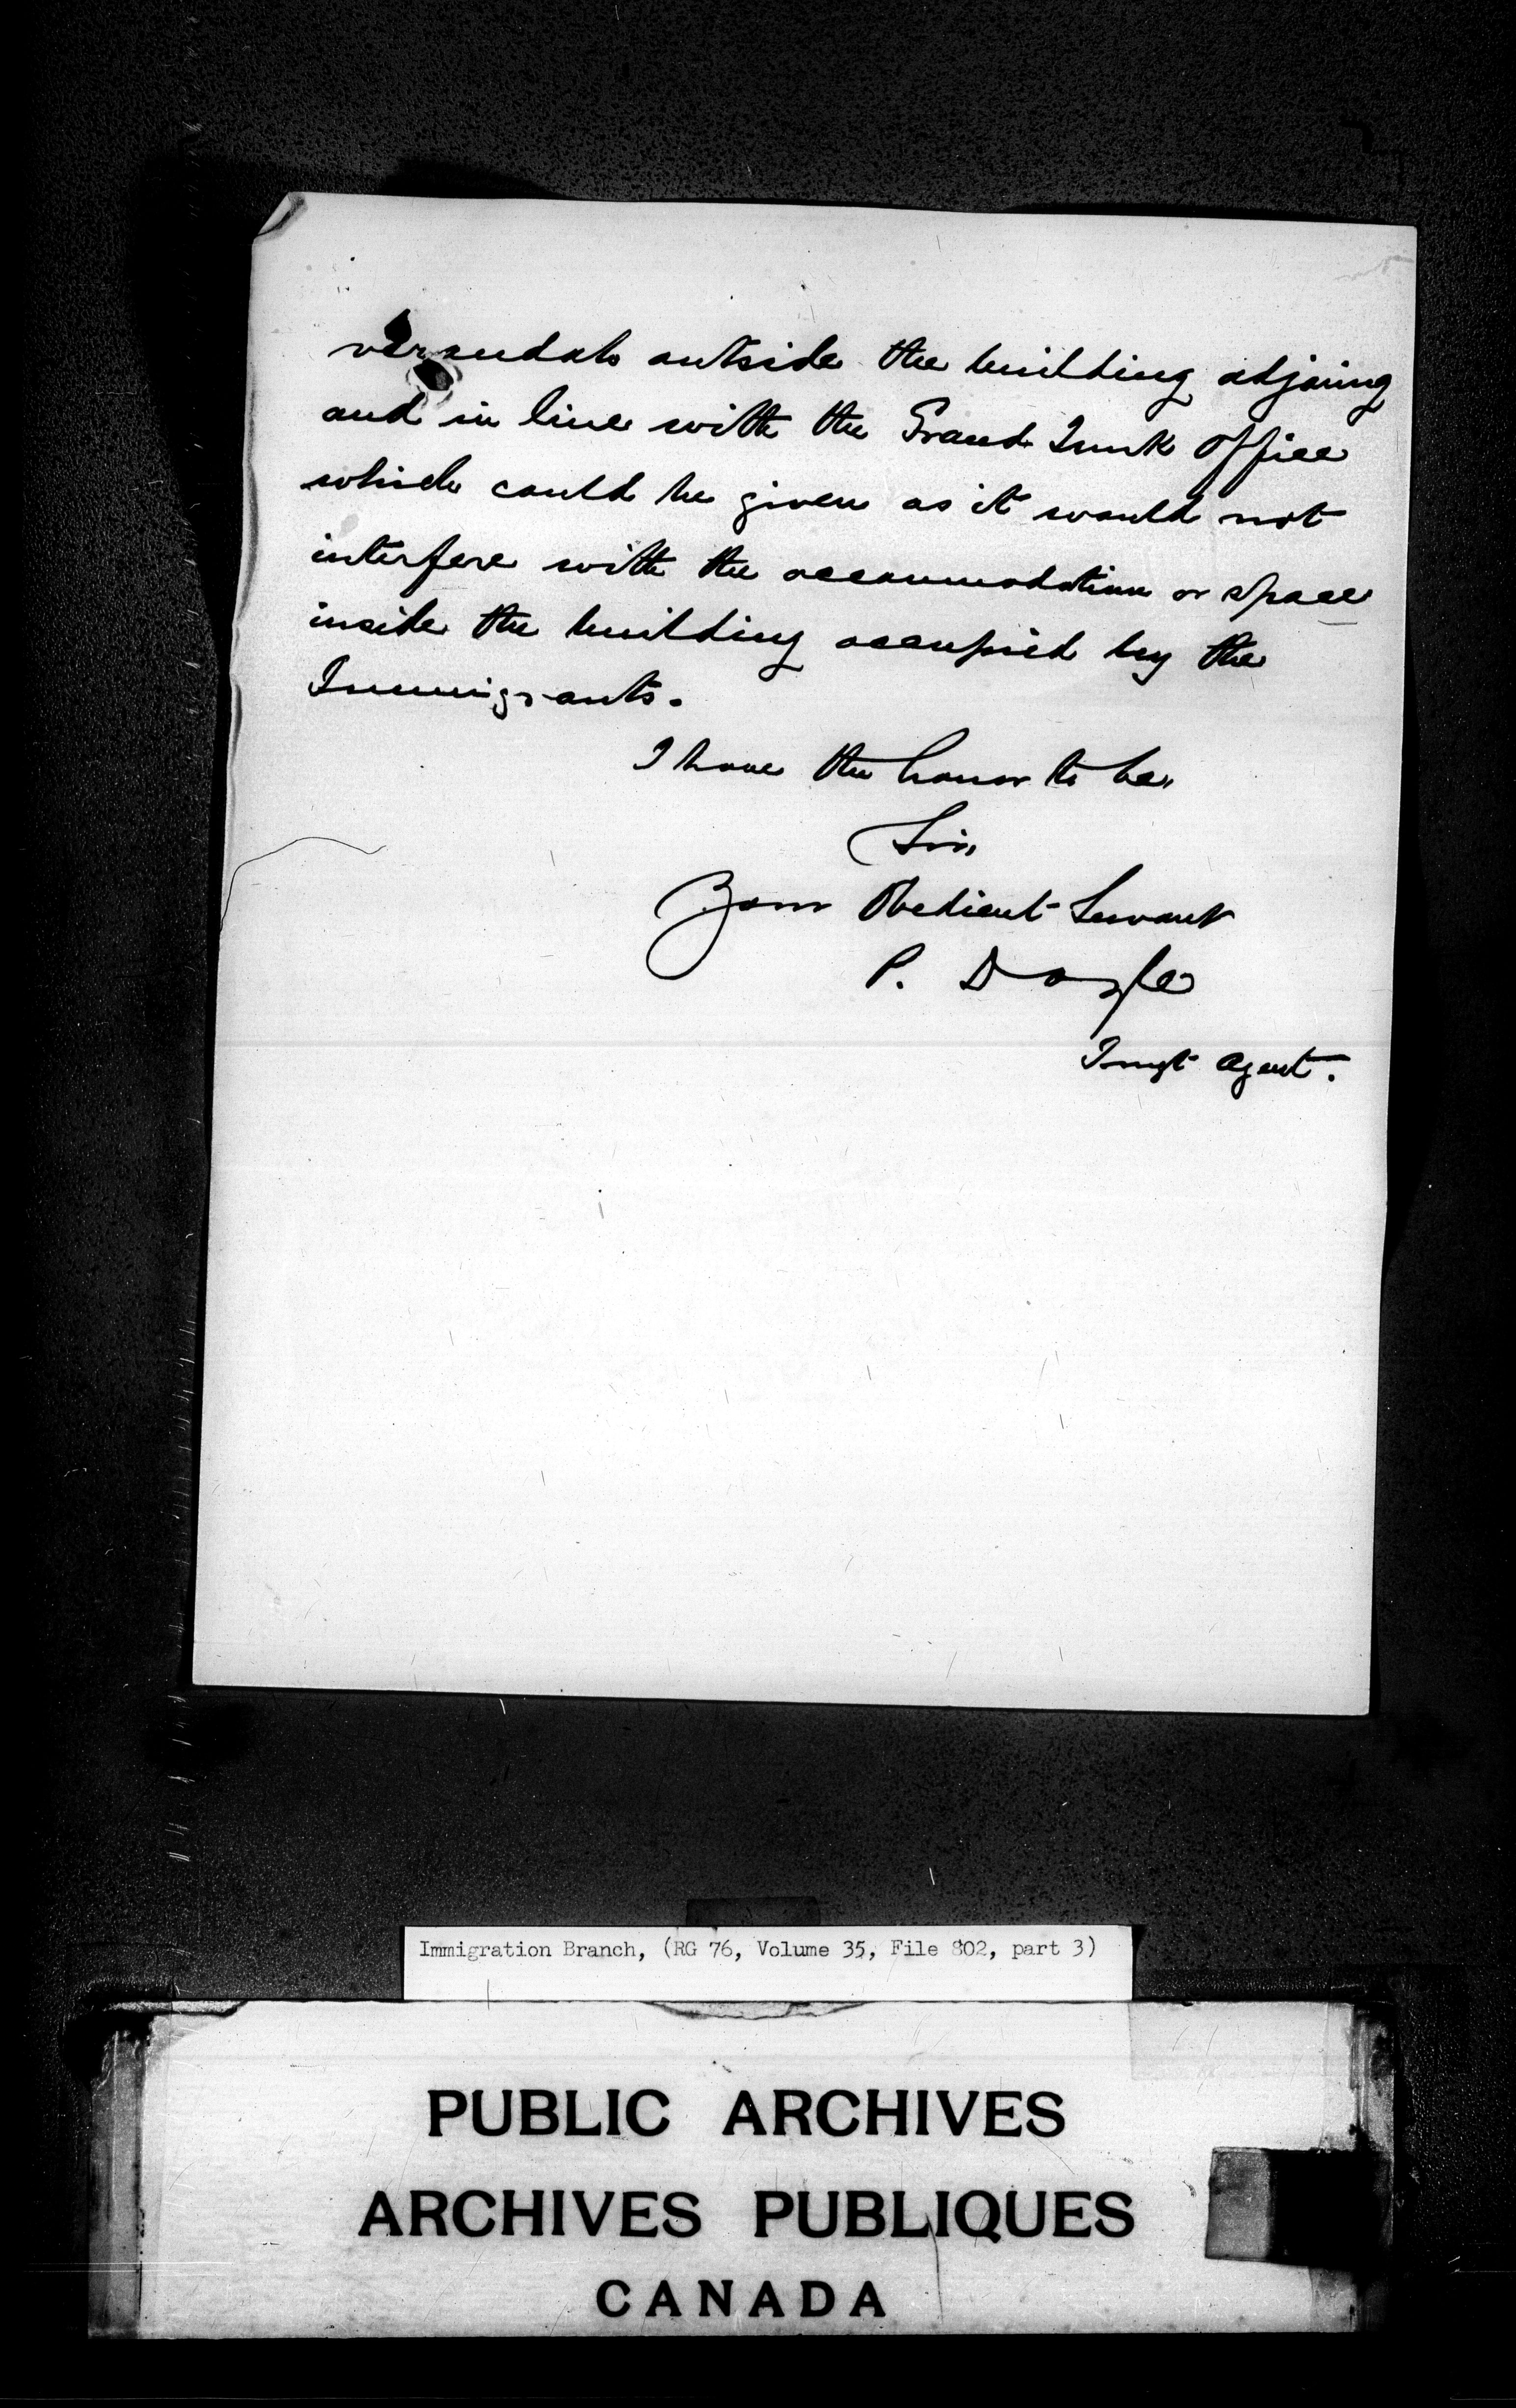 verandah outside the building adjoing
and in line with the Grand Trunk office
which could be given as it would not
interfere with the accommodation or space
inside the building occupied by the
Immigrants.
I have the honor to be,
Sir,
Your Obedient Servant
P. Doyle
Imgt Agent.
Immigration Branch, (RG 76, Volume 35, File 802, part 3)
PUBLIC ARCHIVES
ARCHIVES PUBLIQUES
CANADA